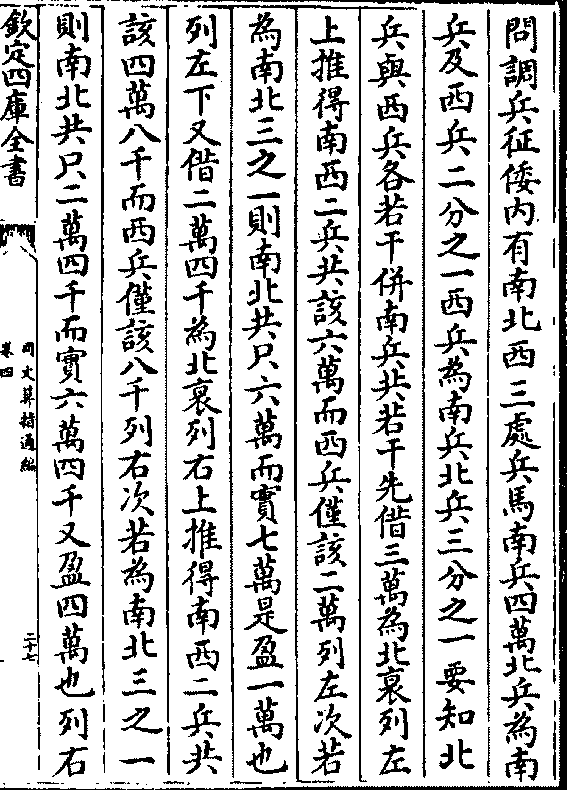 問調兵征倭内有南北西三處兵馬南兵四萬北兵為南
兵及西兵二分之一西兵為南兵北兵三分之一要知北
兵與西兵各若干併南兵共若干先借三萬為北衰列左
上推得南西二兵共該六萬而西兵僅該二萬列左次若
為南北三之一則南北共只六萬而實七萬是盈一萬也
列左下又借二萬四千為北衰列右上推得南西二兵共
該四萬八千而西兵僅該八千列右次若為南北三之一
則南北共只二萬四千而實六萬四千又盈四萬也列右
欽定四庫全書
同文算指通編
卷四
二十七